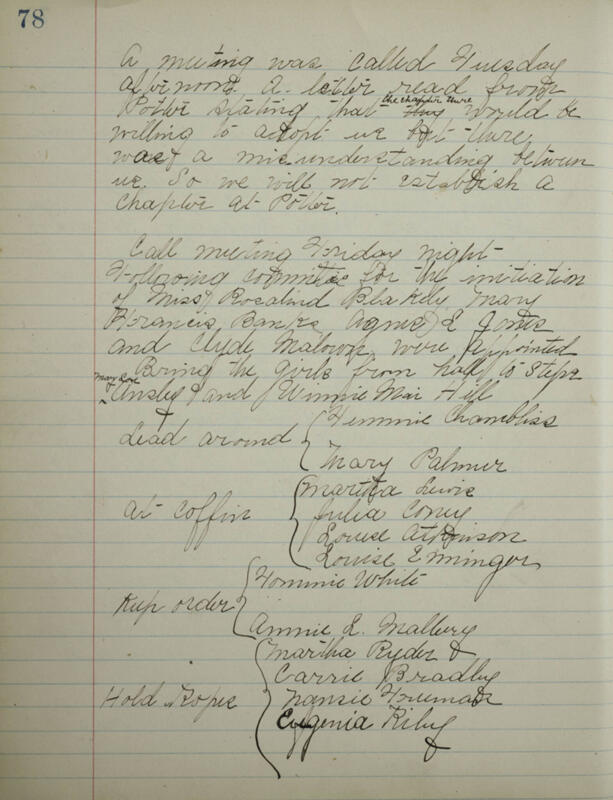 78
A meeting was called Tuesday
afternoon. A letter read from
Potter stating that the chapter there would be
willing to adopt us but there
was a misunderstanding between
us. So we will not establish a
chapter at Potter.
Call meeting Friday night
Following committee for the initiation
of Miss Rosalind Blakely Mary
Francis Banks Agnes E Jones
and Clyde Malown, were appointed
Bring the girls from hall to steps
Mary Rose
Ansley and Winnie Mai Hill
Lead around
Femmie Chambliss
Mary Palmer
at coffin
Martha Lewis
Julia Coney
Louise Atkinson
Louise Eminger
Keep order
Tommie White
Annie L. Mallery
Hold Ropes
Martha Ryder &
Carrie Bradley
Nansie Freeman
Eugenia Riley